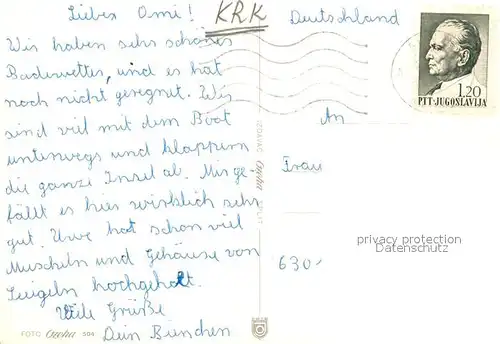 Liebes Omi!
KRK
Deutschland
Wir haben sehr schönes
Badewetter, und es hat
noch nicht geregnet. Wir
sind viel mit dem Boot
unterwegs und klappern
die ganze Insel ab. Mir ge-
fällt es hier wirklich sehr
gut. Uwe hat schon viel
Muscheln und Gehäuse von
Seeigeln hochgeholt.
Viele Grüße
Dein Bienchen
1.20
PTT-JUGOSLAVIJA
An
Frau
630,-
privacy protection
Datenschutz
FOTO Čečha 504
SPLIT